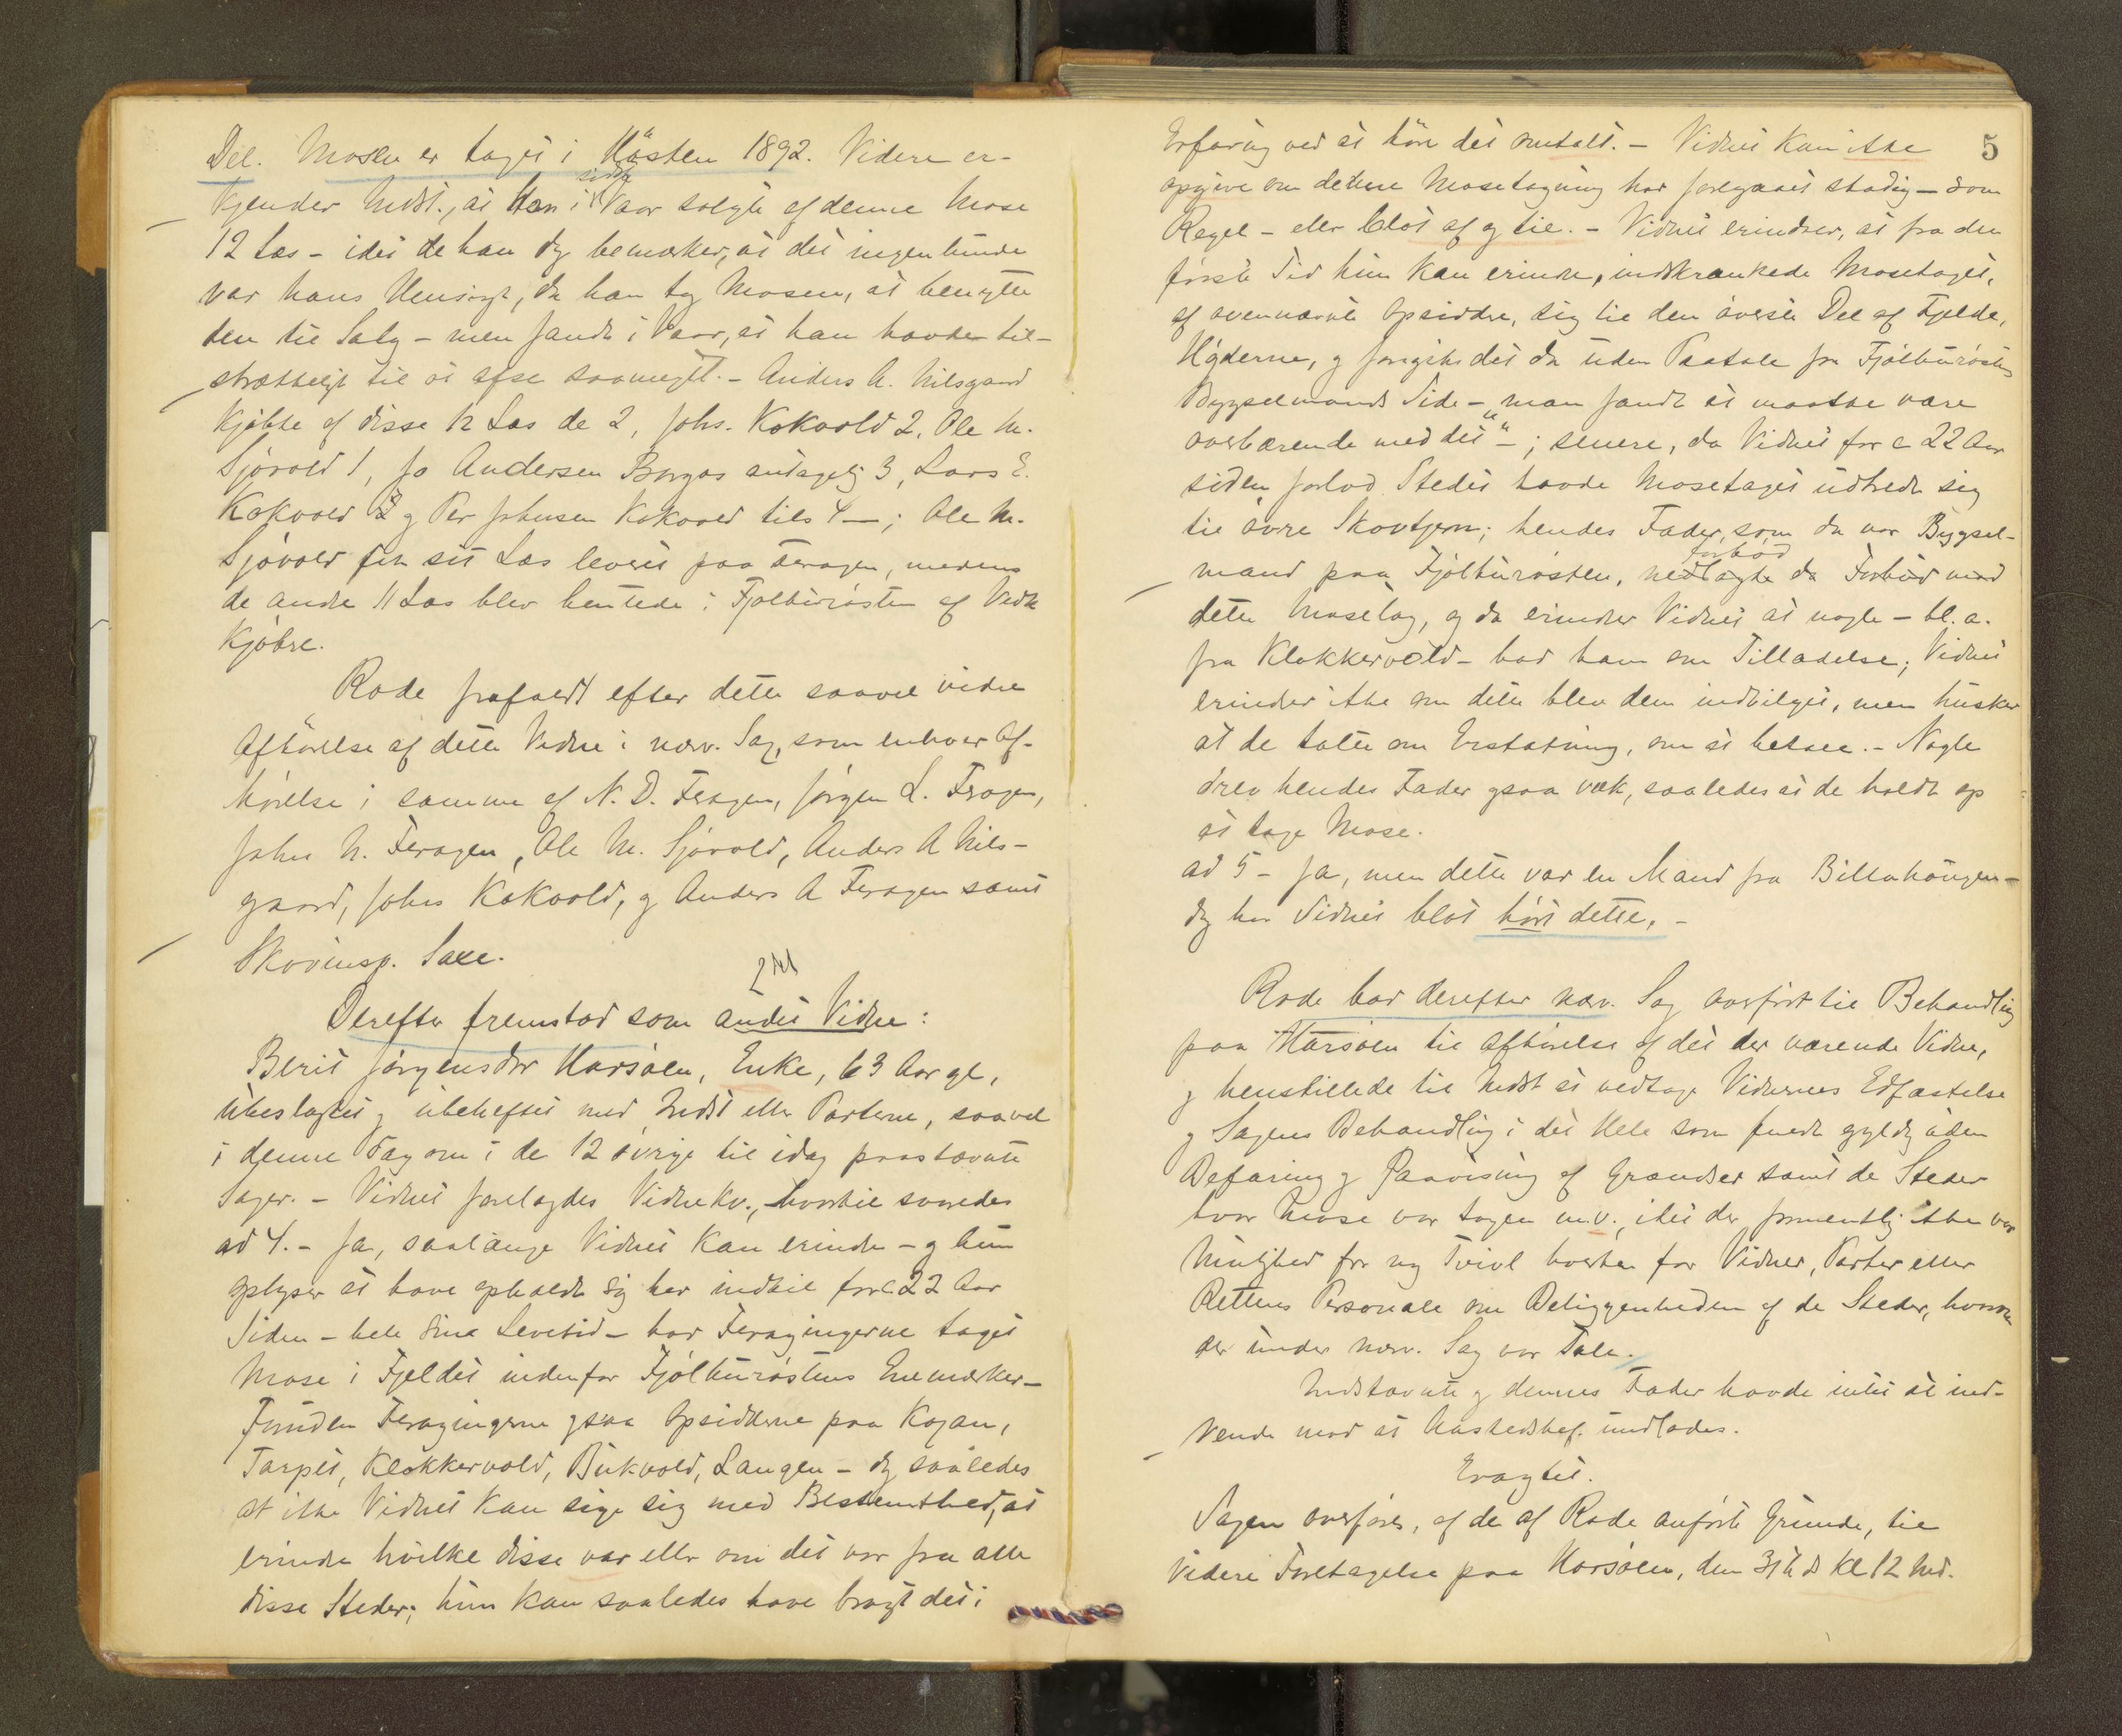 Del. Mosen er taget i Hösten 1892. Videre er-
kjender Indst., at han i sidste Vaar solgte af denne Mose
12 Læs - idet de han dog bemærker, at det ingenlunde
var hans Hensigt, da han tog Mosen, at benytte
den til Salg - men fandt i Vaar, at han havde til-
strækkeligt til at afse saameget. - Anders A. Nilsgaard
kjøbte af disse 12 Læs de 2, Johs. Kokvold 2, Ole M.
Sjøvold 1, Jo Andersen Borgos antagelig 3, Lars E.
Kokvold & og Per Johnsen Kokvold tils 4 - ; Ole M.
Sjøvold fik sit Læs leveret paa Feragen, medens
de andre 11 Læs blev hentede i Fjølburøsten af Vedk
Kjøbre.
Rode frafaldt efter dette saavel videre
Afhørelse af dette Vidne i nærv. Sag, som enhver Af-
hørelse i samme af N. D. Feragen, Jörgen L. Feragen,
John N. Feragen, Ole M. Sjøvold, Anders A Nils-
gaard, Johs Kokvold, og Anders A Feragen samt
Skovinsp. Saxe.
2det
Derefter fremstod som andet Vidne:
Berit Jörgensdtr Harsjøen, Enke, 63 Aar gl,
ubeslægtet og ubeheftet med Indst eller Parterne, saavel
i denne Sag som i de 12 øvrige til idag paastævnte
Sager. - Vidnet forelagdes Vidnekv., hvortil svaredes
ad 4. - Ja, saalænge Vidnet kan erindre - og hun
oplyser at have opholdt sig her indtil for c 22 Aar
siden - hele sine Levetid - har Feragingerne taget
Mose i Fjeldet indenfor Fjølburøstens Enemærker -
Foruden Feragingerne ogsaa Opsidderne paa Kojan,
Tarpet, Klokkervold, Bukvold, Langen - dog saaledes
at ikke Vidnet kan sige sig med Bestemthed, at
erindre hvilke disse var eller om det var fra alle
disse Steder; hun kan saaledes have bragt det i
5
Erfaring ved at høre det omtalt. - Vidnet kan ikke
opgive om denne Mosetagning har foregaaet stadig - som
Regel - eller blot af og til. - Vidnet erindrer, at fra den
første Tid hun kan erindre, indskrænkede Mosetaget,
af ovennævnte Opsiddere, sig til den øverste Del af Fjelde,
Høderne, og foregik det da uden Paatale fra Fjølburøstens
Bygselmands Side - "man fandt at maatte være
overbærende med det" - ; senere, da Vidnet for c 22 Aar
siden forlod Stedet havde Mosetaget udbredt sig
til øvre Skovtjern; hendes Fader, som da var Bygsel-
mand paa Fjølburøsten, nedlagde forbød da Forbud mod
dette Mosetag, og da erindrer Vidnet at nogle - bl. a.
fra Klokkervold - bad ham om Tilladelse; Vidnet
erindrer ikke om dette blev dem indvilget, men husker
at de talte om Erstatning, om at betale. - Nogle
drev hendes Fader ogsaa væk, saaledes at de holdt op
at tage Mose.
ad 5 - Ja, men dette var en Mand fra Billahaugen -
dog har Vidnet blot hørt dette. -
Rode bad derefter nærv. Sag overført til Behandling
paa Harsjøen til Afhørelse af det der værende Vidne,
og henstillede til Indst at vedtage Vidnernes Edfæstelse
og Sagens Behandling i det Hele som fuldt gyldig uden
Befaring og Paavisning af Grændser samt de Steder
hvor Mose var tagen m.v., idet der formentlig ikke var
Mulighed for ny Tvivl hverken for Vidner, Parter eller
Rettens Personale om Beliggenheden af de Steder, hvorom
der under nærv. Sag var Tale.
Indstævnte og dennes Fader havde intet at ind-
vende mod at Aastedsbef. undlades.
Eragtet.
Sagen overføres, af de af Rode anførte Grunde, til
videre Foretagelse paa Harsjøen, den 31te ds kl 12 Md.